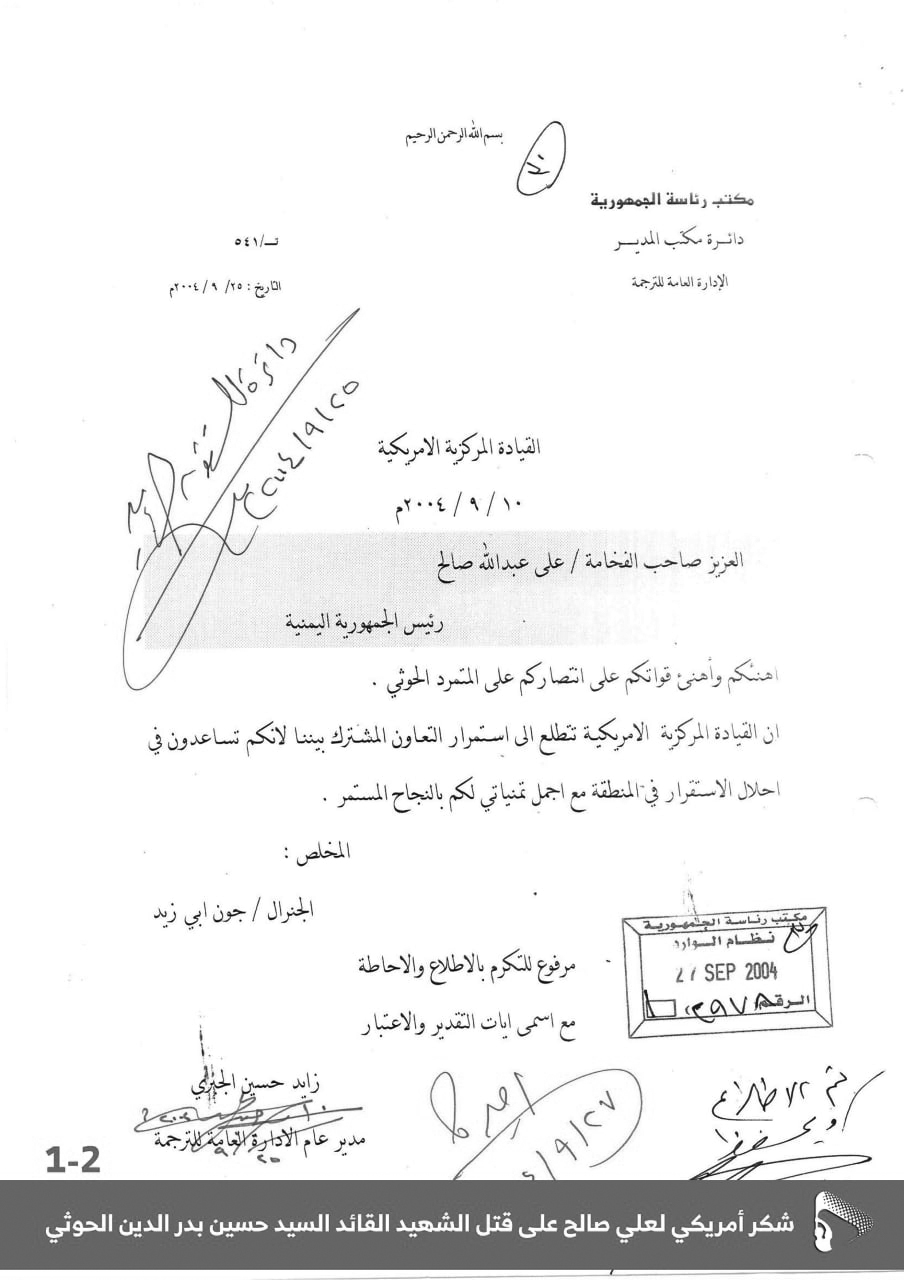 بسم الله الرحمن الرحيم
مكتب رئاسة الجمهورية
دائرة مكتب المدير
الإدارة العامة للترجمة
تـ/٥٤١
التاريخ : ٢٥/ ٩ /٢٠٠٤م
٢٠٠٤/٩/٢٥
القيادة المركزية الامريكية
١٠ / ٩ / ٢٠٠٤م
العزيز صاحب الفخامة / علي عبدالله صالح
رئيس الجمهورية اليمنية
اهنئكم وأهنئ قواتكم على انتصاركم على المتمرد الحوثي .
ان القيادة المركزية الامريكية تتطلع الى استمرار التعاون المشترك بيننا لانكم تساعدون في
احلال الاستقرار في المنطقة مع اجمل تمنياتي لكم بالنجاح المستمر .
المخلص :
الجنرال / جون ابي زيد
مكتب رئاسة الجمهورية
نظام الوارد
27 SEP 2004
الرقم
مرفوع للتكرم بالاطلاع والاحاطة
مع اسمى ايات التقدير والاعتبار
زايد حسين
مدير عام الادارة العامة للترجمة
تم الاطلاع
ويحفظ
٩/٢٧
1-2
شكر أمريكي لعلي صالح على قتل الشهيد القائد السيد حسين بدر الدين الحوثي